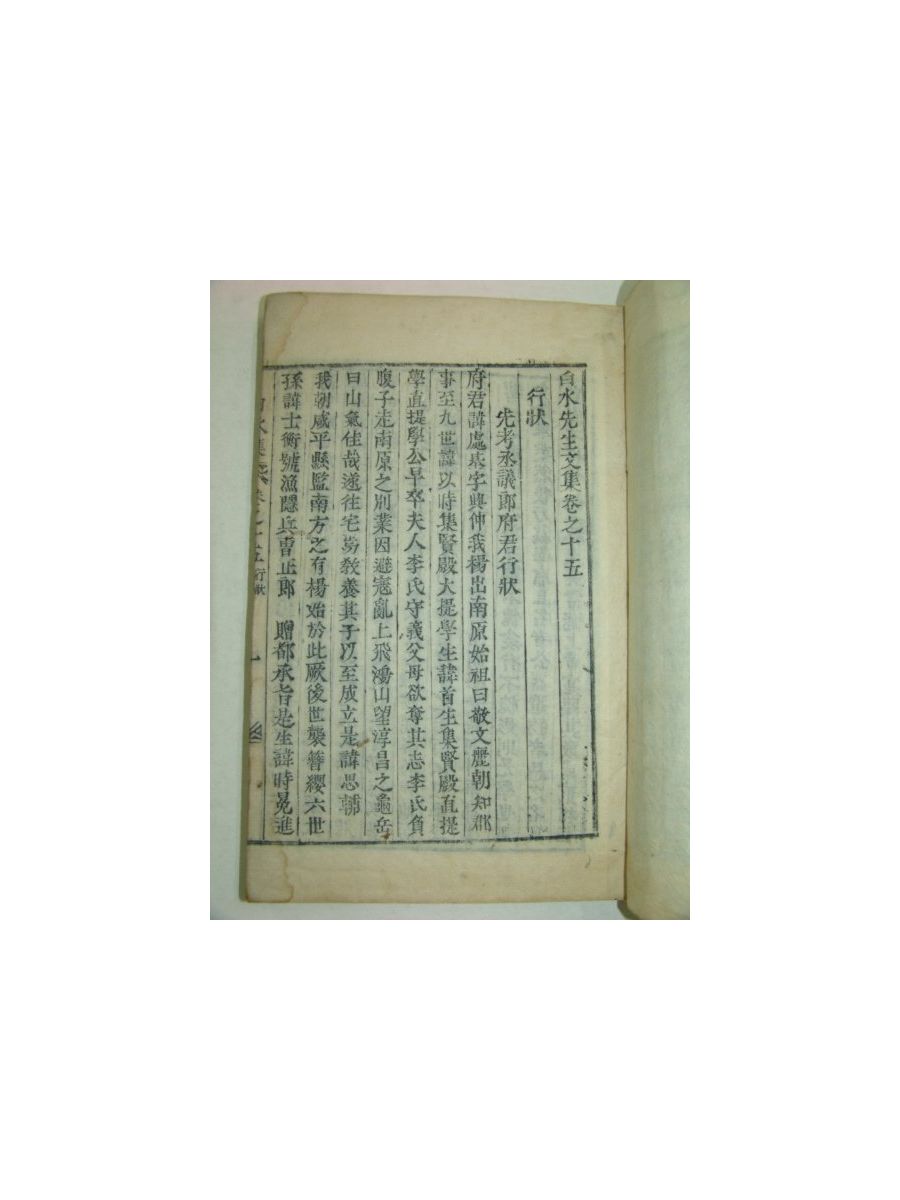 白水先生文集卷之十五
行狀
先考丞議郎府君行狀
府君諱處基字興仲我楊出南原始祖曰敬文麗朝知郡
事至九世諱以時集賢殿大提學生諱首生集賢殿直提
學直提學公早卒夫人李氏守義父母欲奪其志李氏負
腹子走南原之別業因避寇亂上飛鴻山望淳昌之龜岳
曰山氣佳哉遂往宅焉敎養其子以至成立是諱思輔
我朝咸平縣監南方之有楊始於此厥後世襲簪纓六世
孫諱士衡號漁隱兵曹正郎 贈都承旨是生諱時冕進
白水集 卷之十五 行狀 一